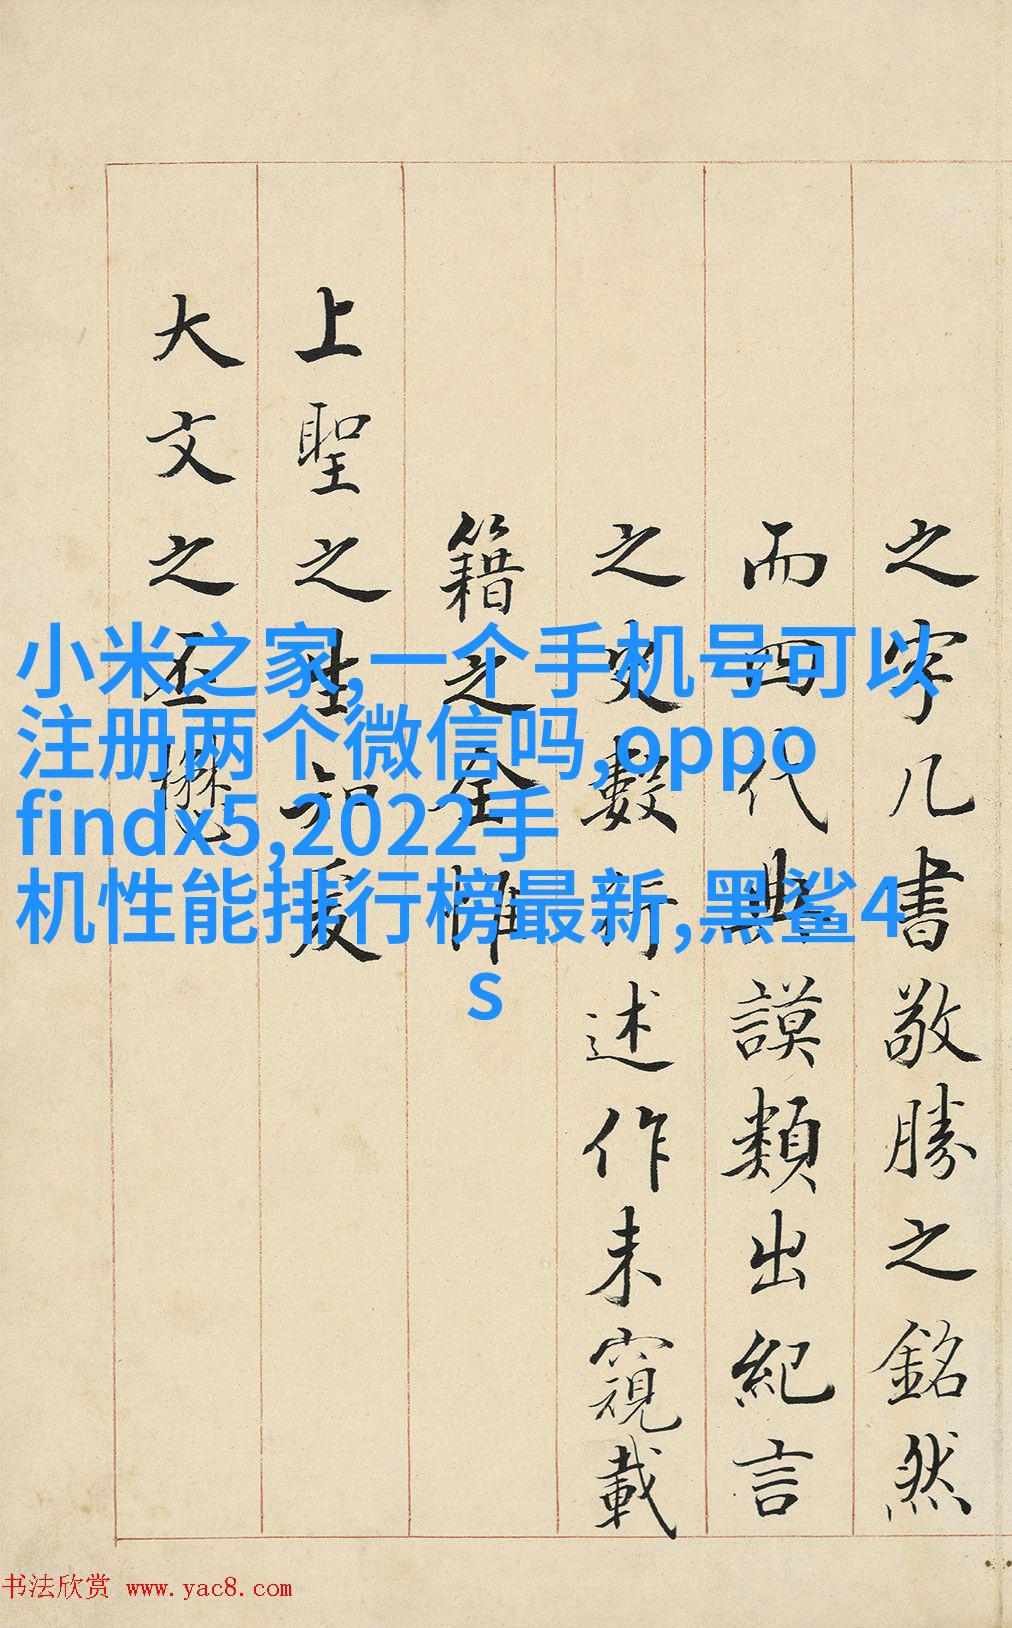 之字几書敬勝之銘然
而四代典謨類出紀言
之數述作未窺載
籍之全惟
上聖之生知爰
大文之丕
小米之家,一个手机号可以
注册两个微信吗,oppo
findx5,2022手
机性能排行榜最新,黑鲨4
s
书法欣赏 www.yac8.com